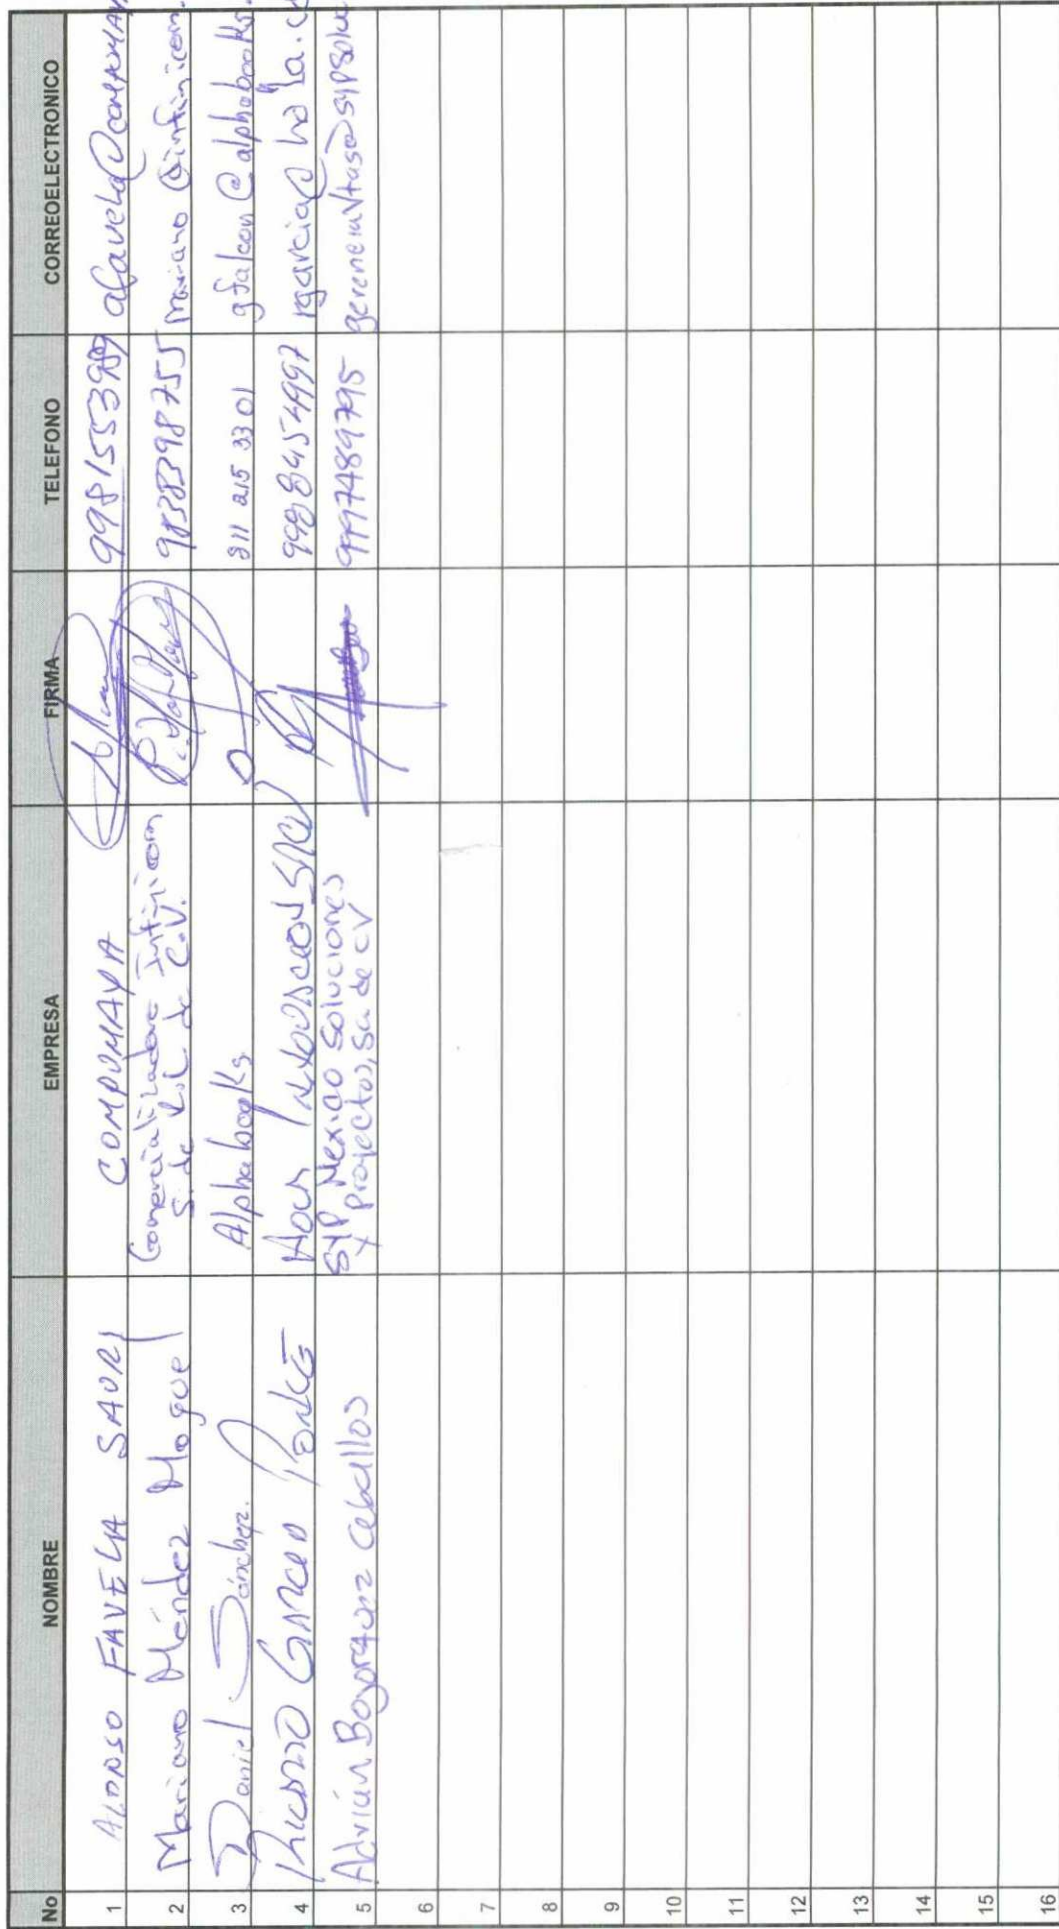 No NOMBRE EMPRESA FIRMA TELEFONO CORREOELECTRONICO
1 ALONSO FAVELA SAURI COMPUMAYA afavela@compumay
2 Mariano Méndez Moguel Comercializadora Infinicom S. de R.L. de C.V. 9838398755 mariano@infinicom.
3 Daniel Sánchez. Alphabooks. 811 215 3301 gfalcon@alphabooks.
4 GARCIA PONCE 9998454997 rgarcia@
5 Adrián Bojorquez Ceballos SYP Mexico Soluciones
y Proyectos, Sa de CV 9997489795
6
7
8
9
10
11
12
13
14
15
16